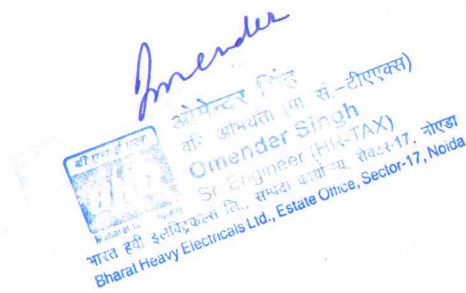 Omender
ओमेन्दर सिंह
वरि अभियंता (मा. सं.-टीएएक्स)
Omender Singh
Sr. Engineer (HR-TAX)
बी एच ई एल
भारत हेवी इलेक्ट्रिकल्स लि., सम्पदा कार्यालय, सेक्टर-17, नोएडा
Bharat Heavy Electricals Ltd., Estate Office, Sector-17, Noida